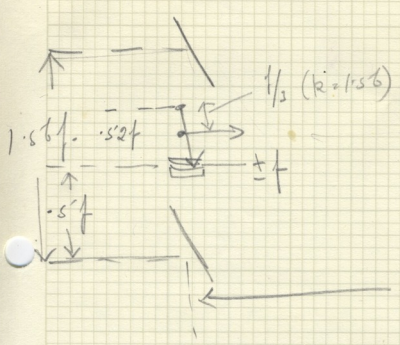 1/3 (k = 1.56)
1.56f. .52f
± f
.5f